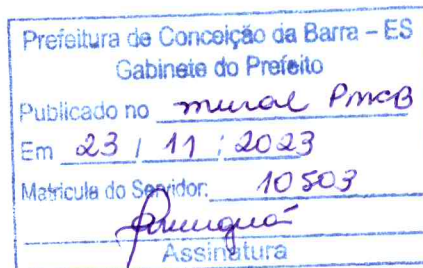 Prefeitura de Conceição da Barra – ES
Gabinete do Prefeito
Publicado no mural PMCB
Em 23 / 11 / 2023
Matricula do Servidor: 10503
Assinatura